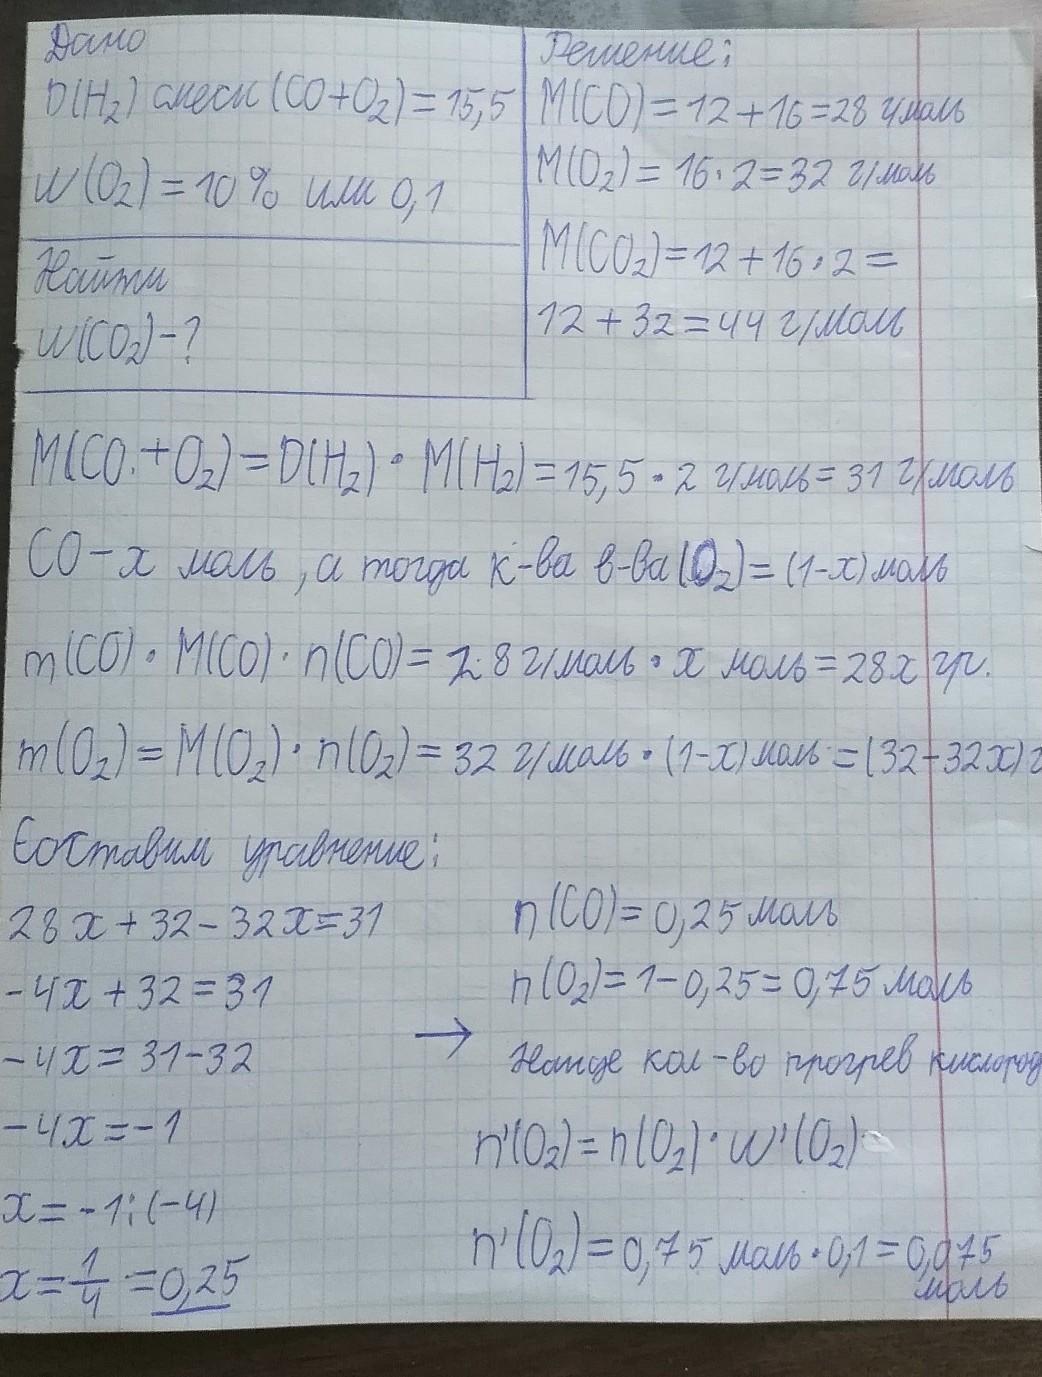 Дано
D(H₂) смеси (CO+O₂)=15,5
W(O₂)=10% или 0,1
Найти
W(CO₂)-?
Решение:
M(CO)=12+16=28 г/моль
M(O₂)=16·2=32 г/моль
M(CO₂)=12+16·2=
12+32=44 г/моль
M(CO+O₂)=D(H₂)·M(H₂)=15,5·2 г/моль=31 г/моль
CO-x моль, а тогда к-ва в-ва(O₂)=(1-x)моль
m(CO)·M(CO)·n(CO)=28 г/моль·x моль=28x гр.
m(O₂)=M(O₂)·n(O₂)=32 г/моль·(1-x)моль=(32-32x)г
Составим уравнение:
28x+32-32x=31
-4x+32=31
-4x=31-32
-4x=-1
x=-1:(-4)
x=1/4=0,25
→
n(CO)=0,25 моль
n(O₂)=1-0,25=0,75 моль
Найде кол-во прогрев кислород
n'(O₂)=n(O₂)·W'(O₂)
n'(O₂)=0,75 моль·0,1=0,075
моль